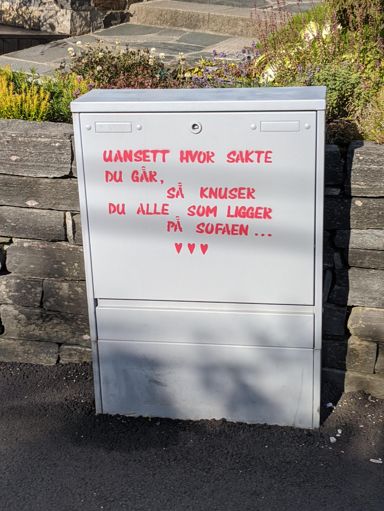 UANSETT HVOR SAKTE
DU GÅR,
SÅ KNUSER
DU ALLE SOM LIGGER
PÅ SOFAEN...
♥♥♥